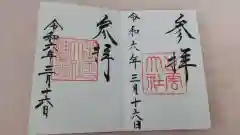 参拝
令和六年三月十六日
参拝
令和六年三月十六日